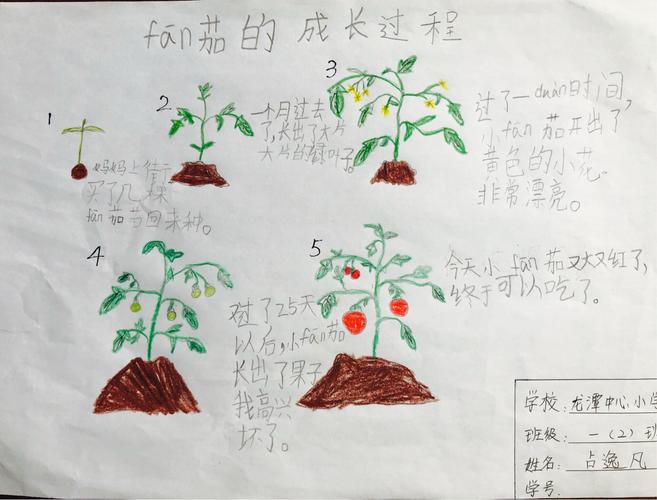 fān茄的成长过程
1
妈妈上街
买了几棵
fān茄苗回来种。
2
一个月过去
了,长出了大片
大片的树叶子。
3
过了一duàn时间,
小fān茄开出了
黄色的小花。
非常漂亮。
4
过了25天
以后,小fān茄
长出了果子
我高兴
坏了。
5
今天小fān茄又大又红了,
终于可以吃了。
学校:龙潭中心小学
班级:一(2)班
姓名:占逸凡
学号: